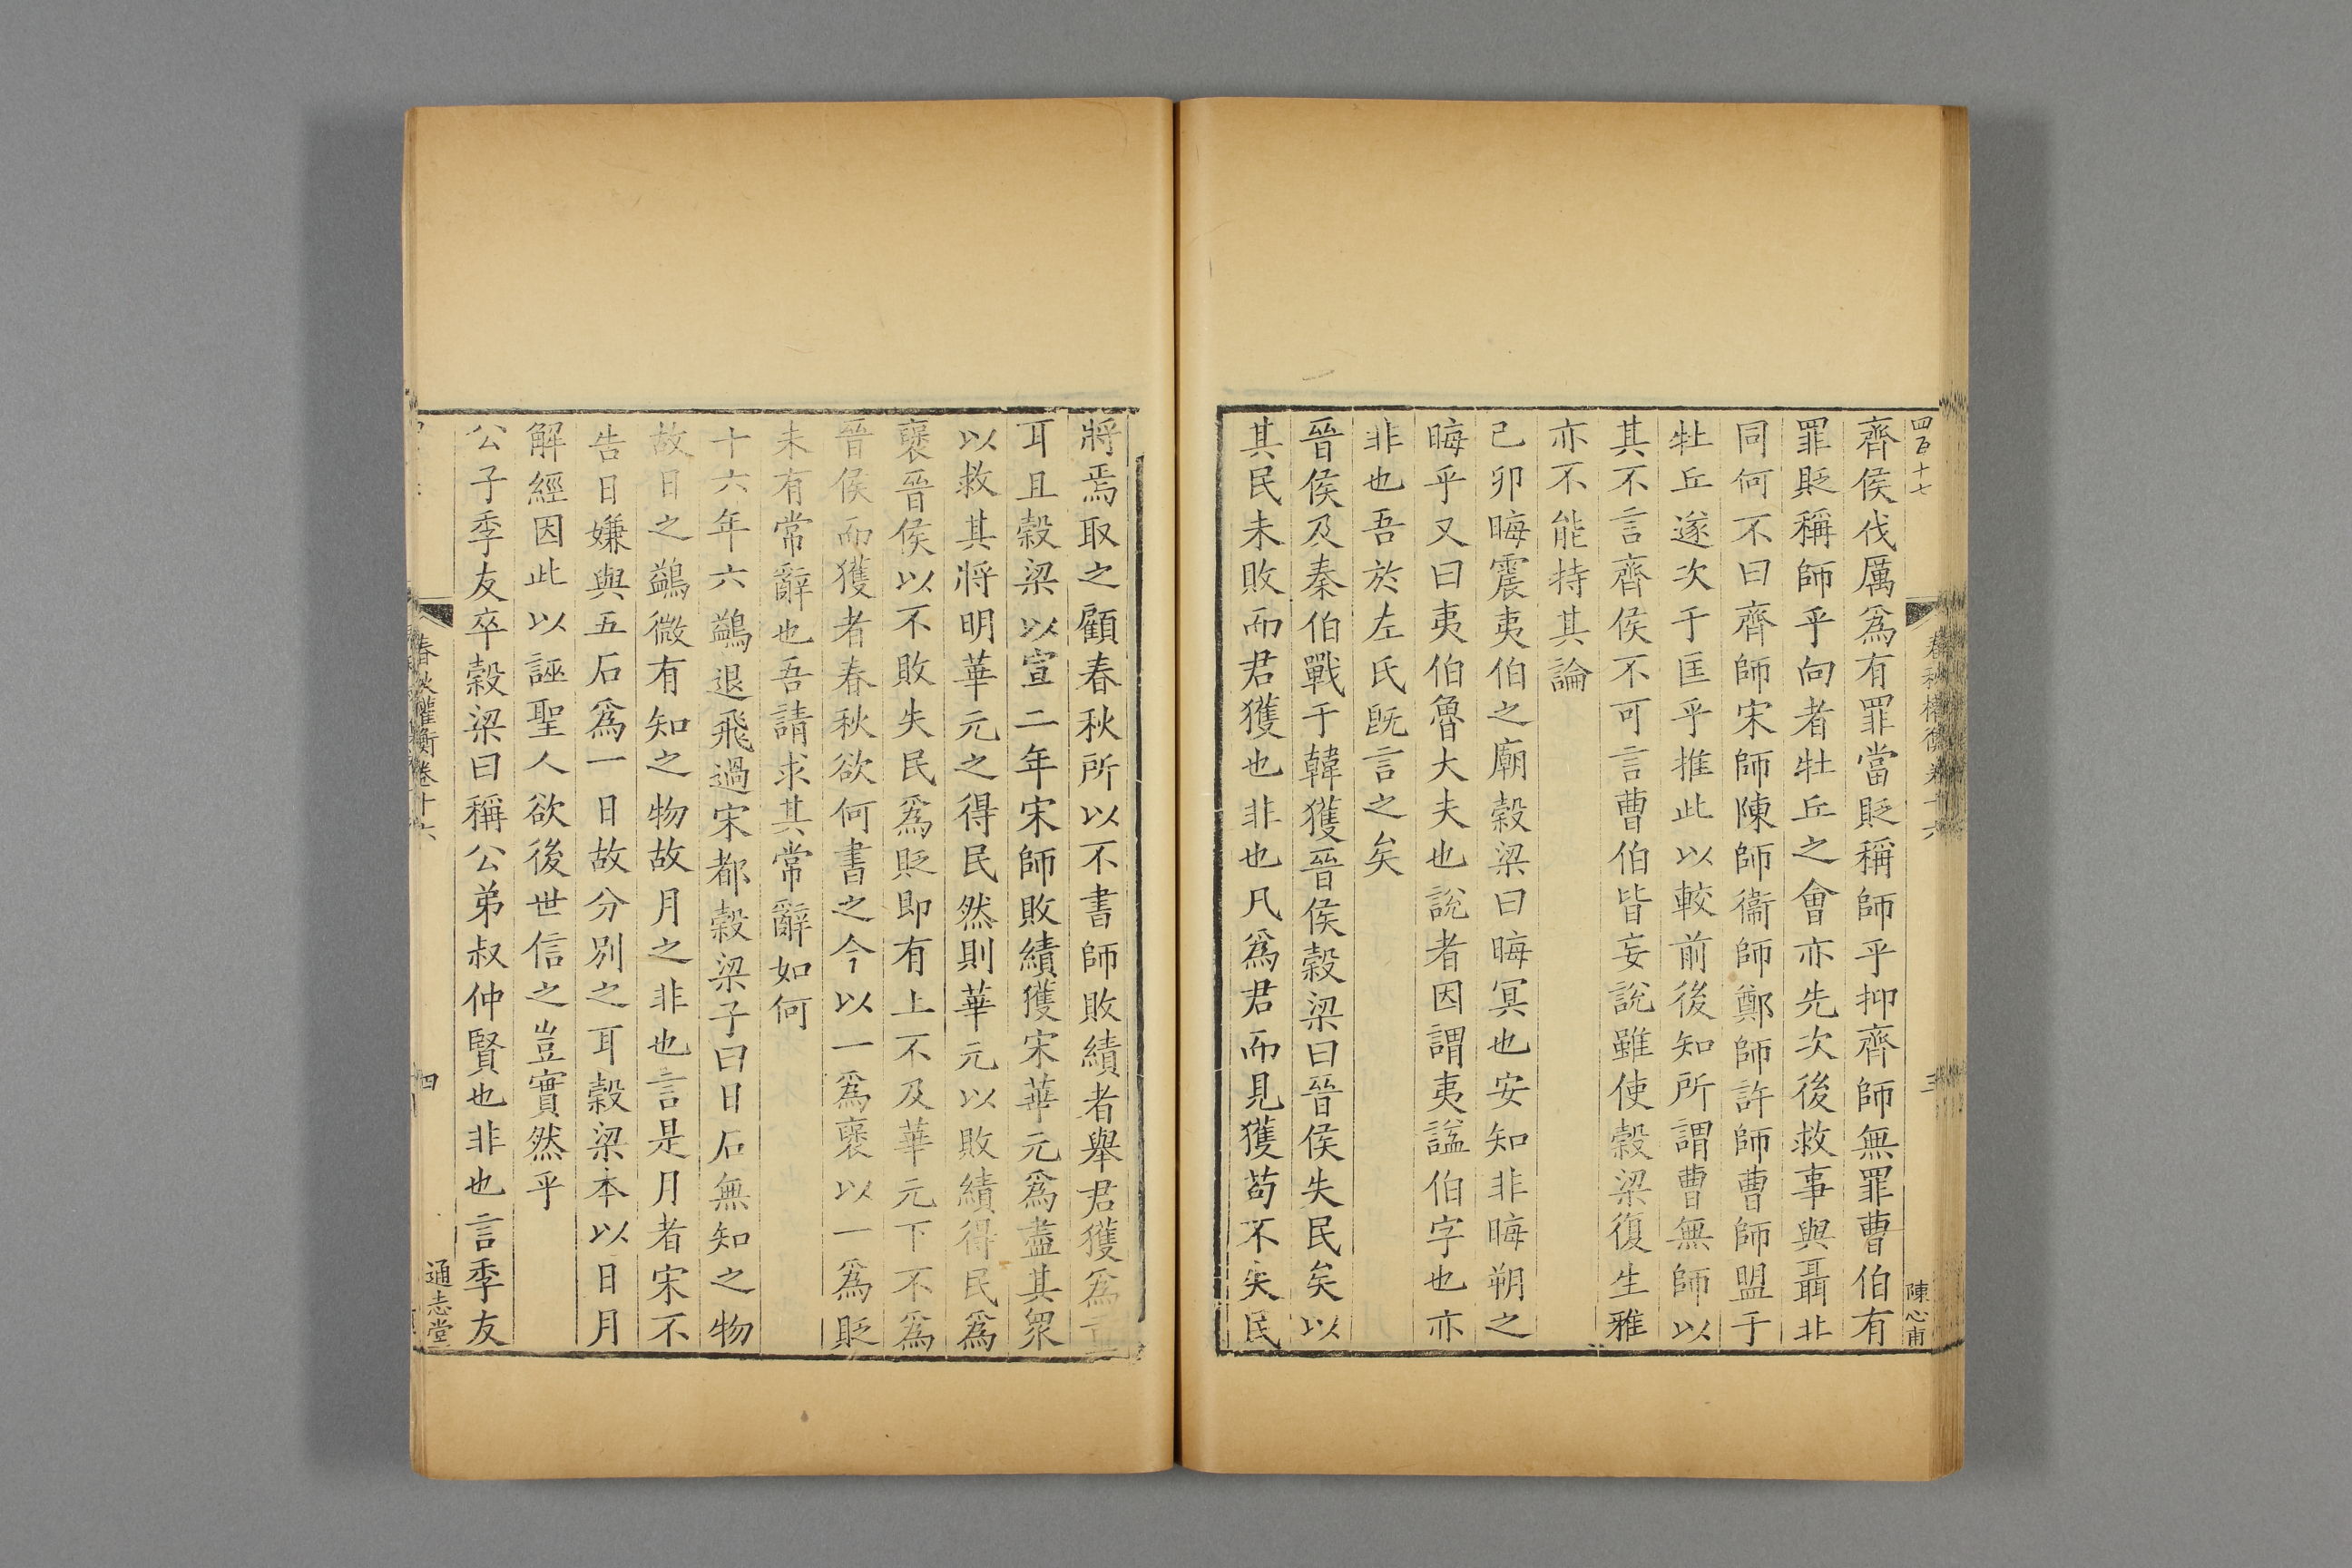 四百十七
春秋權衡卷十六
三
陳心甫
齊侯伐厲爲有罪當貶稱師乎抑齊師無罪曹伯有
罪貶稱師乎向者牡丘之會亦先次後救事與聶北
同何不曰齊師宋師陳師衞師鄭師許師曹師盟于
牡丘遂次于匡乎推此以較前後知所謂曹無師以
其不言齊侯不可言曹伯皆妄說雖使穀梁復生雅
亦不能持其論
己卯晦震夷伯之廟穀梁曰晦冥也安知非晦朔之
晦乎又曰夷伯魯大夫也說者因謂夷謚伯字也亦
非也吾於左氏旣言之矣
晉侯及秦伯戰于韓獲晉侯穀梁曰晉侯失民矣以
其民未敗而君獲也非也凡爲君而見獲苟不失民
將焉取之顧春秋所以不書師敗績者舉君獲爲重
耳且穀梁以宣二年宋師敗績獲宋華元爲盡其眾
以救其將明華元之得民然則華元以敗績得民爲
襃晉侯以不敗失民爲貶即有上不及華元下不爲
晉侯而獲者春秋欲何書之今以一爲襃以一爲貶
未有常辭也吾請求其常辭如何
十六年六鷁退飛過宋都穀梁子曰日石無知之物
故日之鷁微有知之物故月之非也言是月者宋不
告日嫌與五石爲一日故分別之耳穀梁本以日月
解經因此以誣聖人欲後世信之豈實然乎
公子季友卒穀梁曰稱公弟叔仲賢也非也言季友
春秋權衡卷十六
四
通志堂